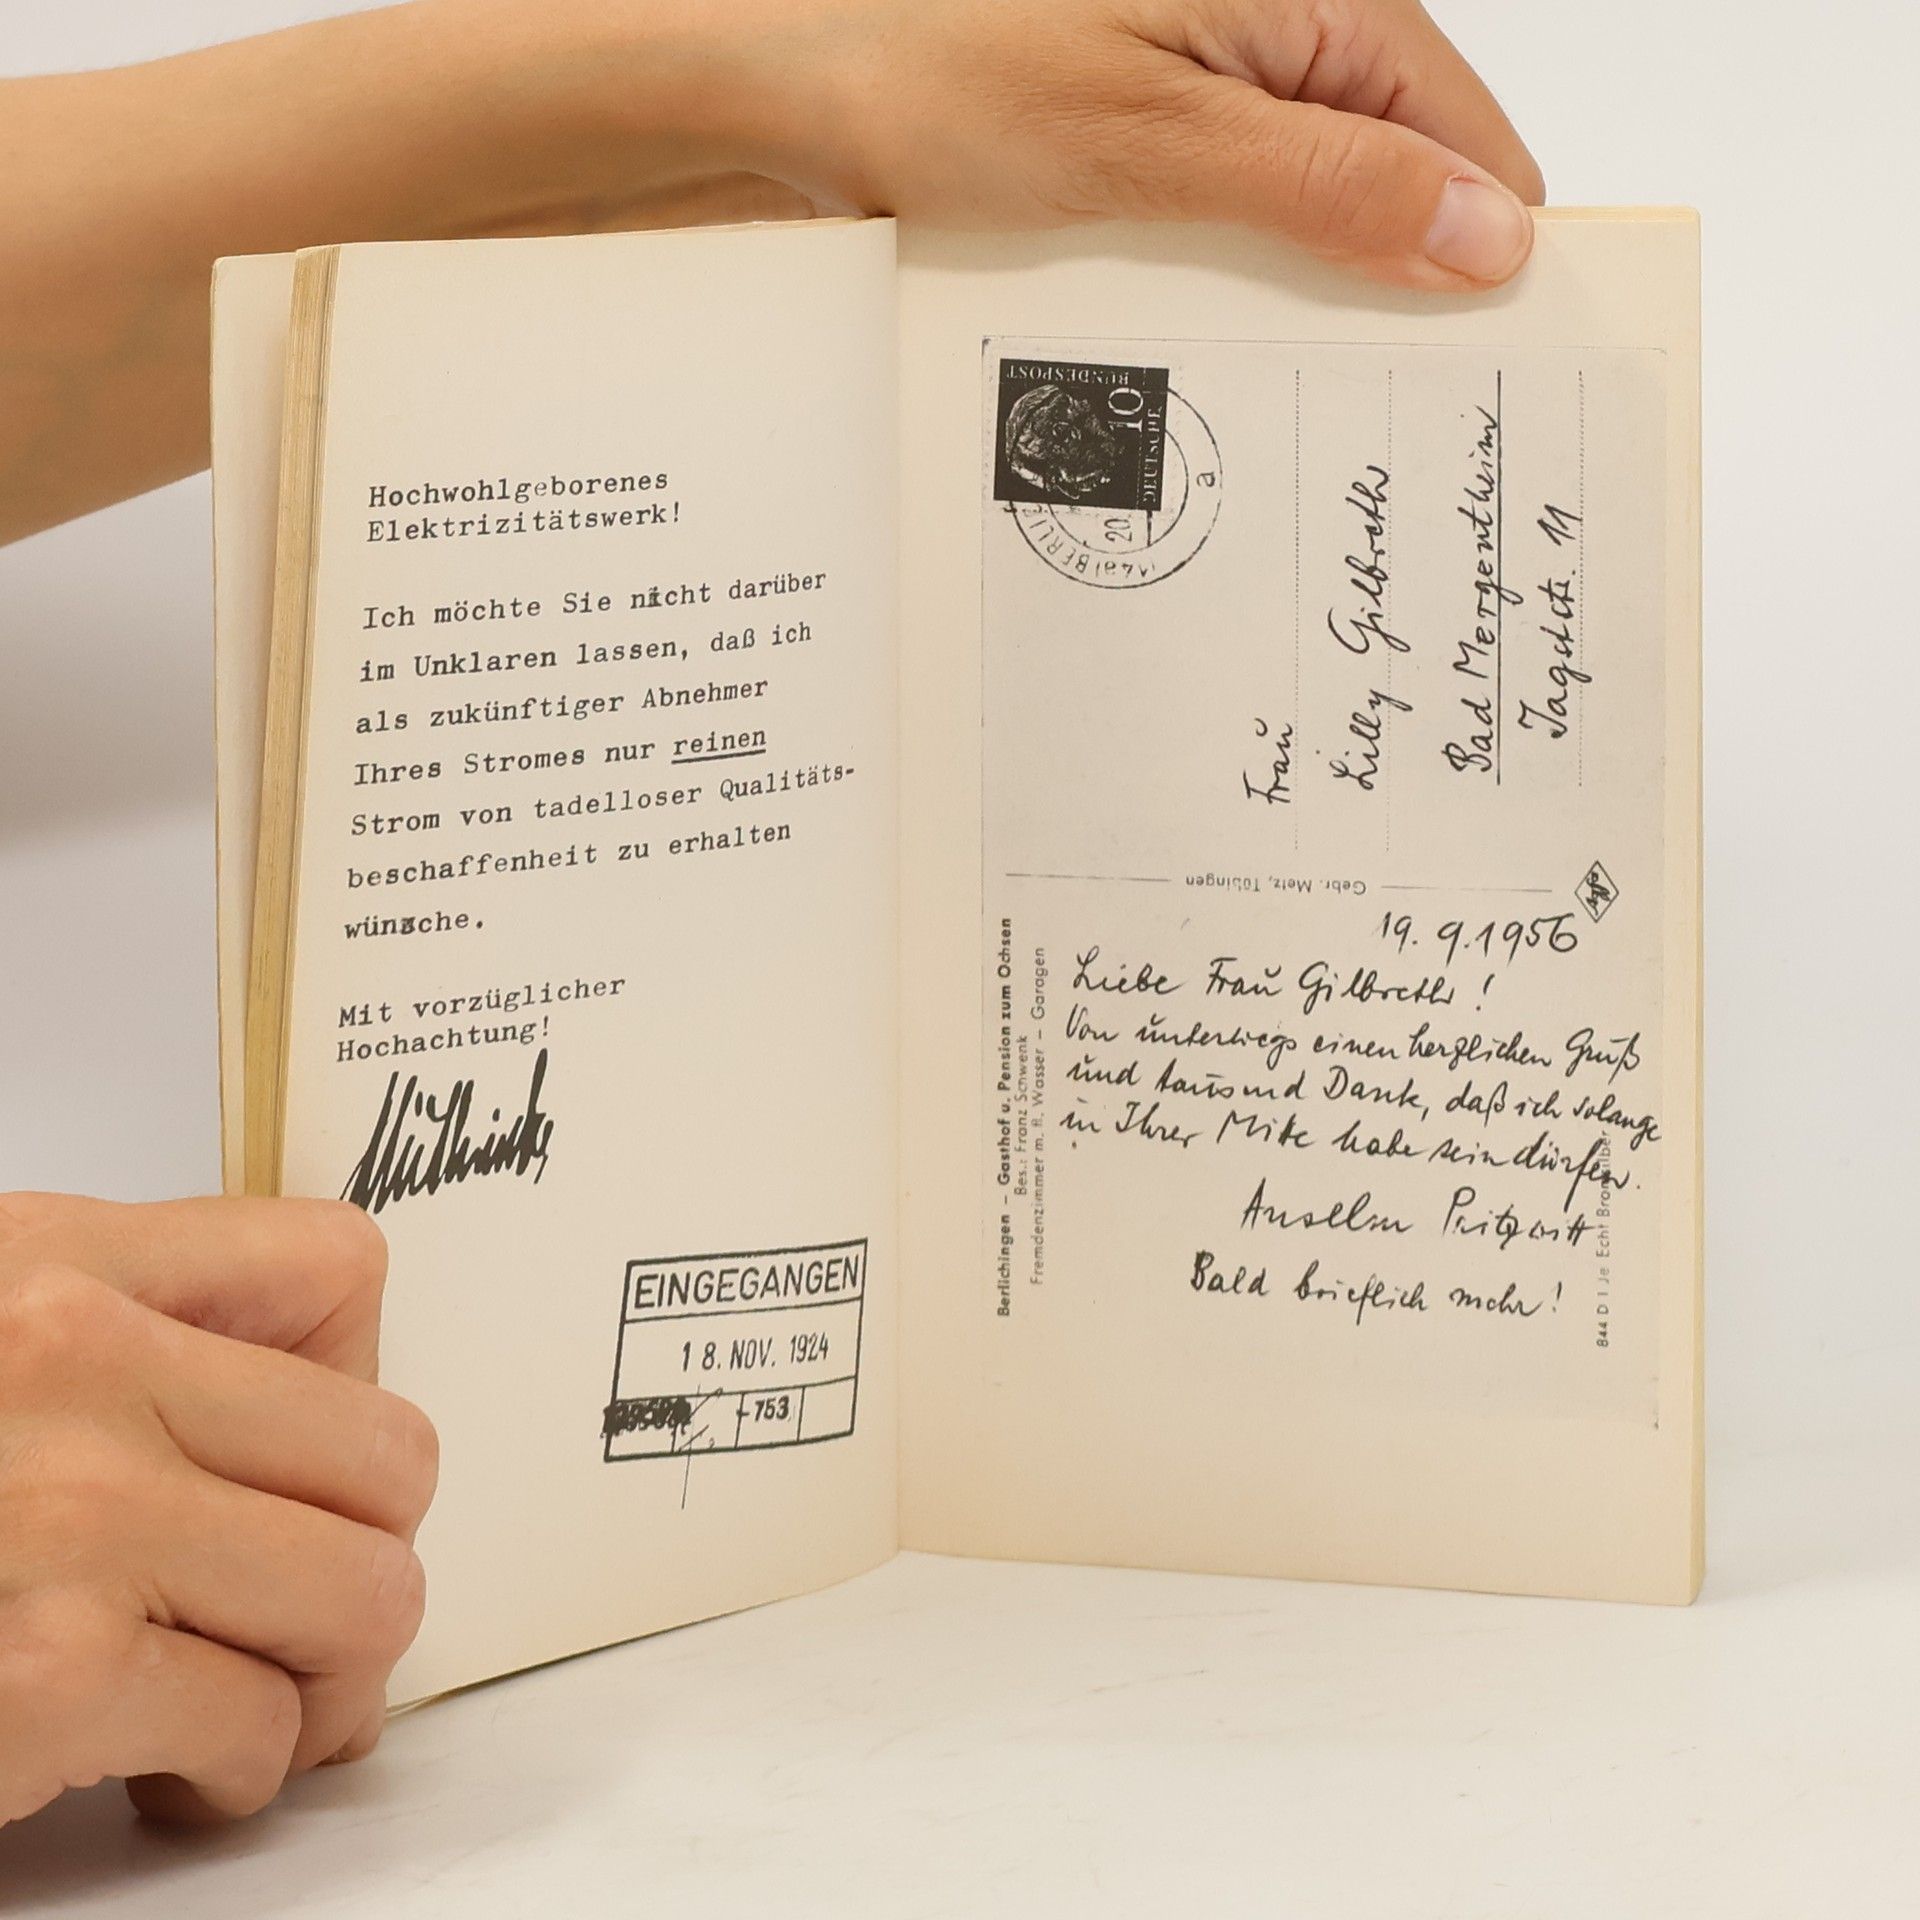 Hochwohlgeborenes
Elektrizitätswerk!
Ich möchte Sie nicht darüber
im Unklaren lassen, daß ich
als zukünftiger Abnehmer
Ihres Stromes nur reinen
Strom von tadelloser Qualitäts-
beschaffenheit zu erhalten
wünsche.
Mit vorzüglicher
Hochachtung!
EINGEGANGEN
18. NOV. 1924
-753
DEUTSCHE
BUNDESPOST
10
BERLI
20.
a
Frau
Lilly Gilbreth
Bad Mergentheim
Jagstr. 11
Gebr. Metz, Tübingen
Berlichingen – Gasthof u. Pension zum Ochsen
Bes.: Franz Schwenk
Fremdenzimmer m. fl. Wasser – Garagen
19. 9. 1956
Liebe Frau Gilbreth!
Von unterwegs einen herzlichen Gruß
und tausend Dank, daß ich solange
in Ihrer Mitte habe sein dürfen.
Anselm
Bald brieflich mehr!
844 D I Je Echt Bromsilber